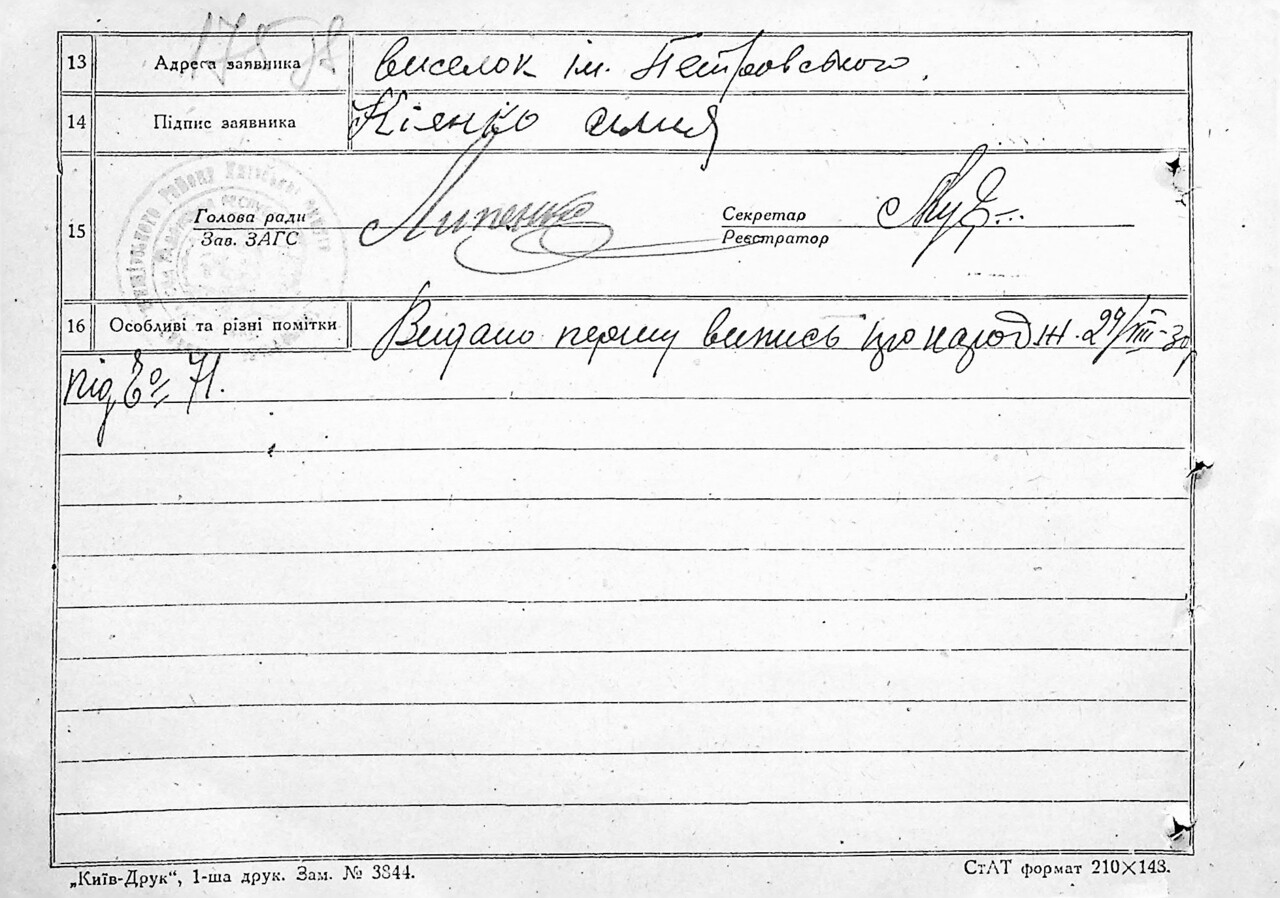 13 Адреса заявника виселок ім. Петровського
14 Підпис заявника Кіянко
15 Голова ради Липенко Секретар
Зав. ЗАГС Реєстратор
16 Особливі та різні помітки Видано першу випись про народж. 29/III-30
під № 71.
„Київ-Друк“, 1-ша друк. Зам. № 3344. СтАТ формат 210×143.